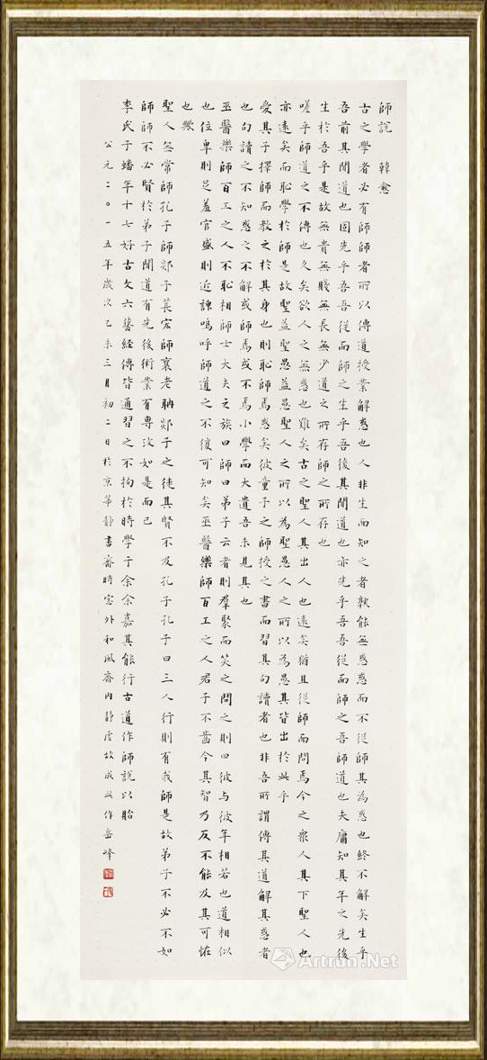 師說 韓愈
古之學者必有師師者所以傳道授業解惑也人非生而知之者孰能無惑惑而不從師其為惑也終不解矣生乎
吾前其聞道也固先乎吾吾從而師之生乎吾後其聞道也亦先乎吾吾從而師之吾師道也夫庸知其年之先後
生於吾乎是故無貴無賤無長無少道之所存師之所存也
嗟乎師道之不傳也久矣欲人之無惑也難矣古之聖人其出人也遠矣猶且從師而問焉今之衆人其下聖人也
亦遠矣而恥學於師是故聖益聖愚益愚聖人之所以為聖愚人之所以為愚其皆出於此乎
愛其子擇師而教之於其身也則恥師焉惑矣彼童子之師授之書而習其句讀者也非吾所謂傳其道解其惑者
也句讀之不知惑之不解或師焉或不焉小學而大遺吾未見其也
巫醫樂師百工之人不恥相師士大夫之族曰師曰弟子云者則羣聚而笑之問之則曰彼与彼年相若也道相似
也位卑則足羞官盛則近諛嗚呼師道之不復可知矣巫醫樂師百工之人君子不齒今其智乃反不能及其可怪
也歟
聖人無常師孔子師郯子萇宏師襄老聃郯子之徒其賢不及孔子孔子曰三人行則有我師是故弟子不必不如
師師不必賢於弟子聞道有先後術業有專攻如是而已
李氏子蟠年十七好古文六藝經傳皆通習之不拘於時學于余余嘉其能行古道作師說以貽
公元二〇一五年歲次乙未三月初二日於京華靜書齋時窗外和風齋內靜虛故成此作岳峰
Artron.Net